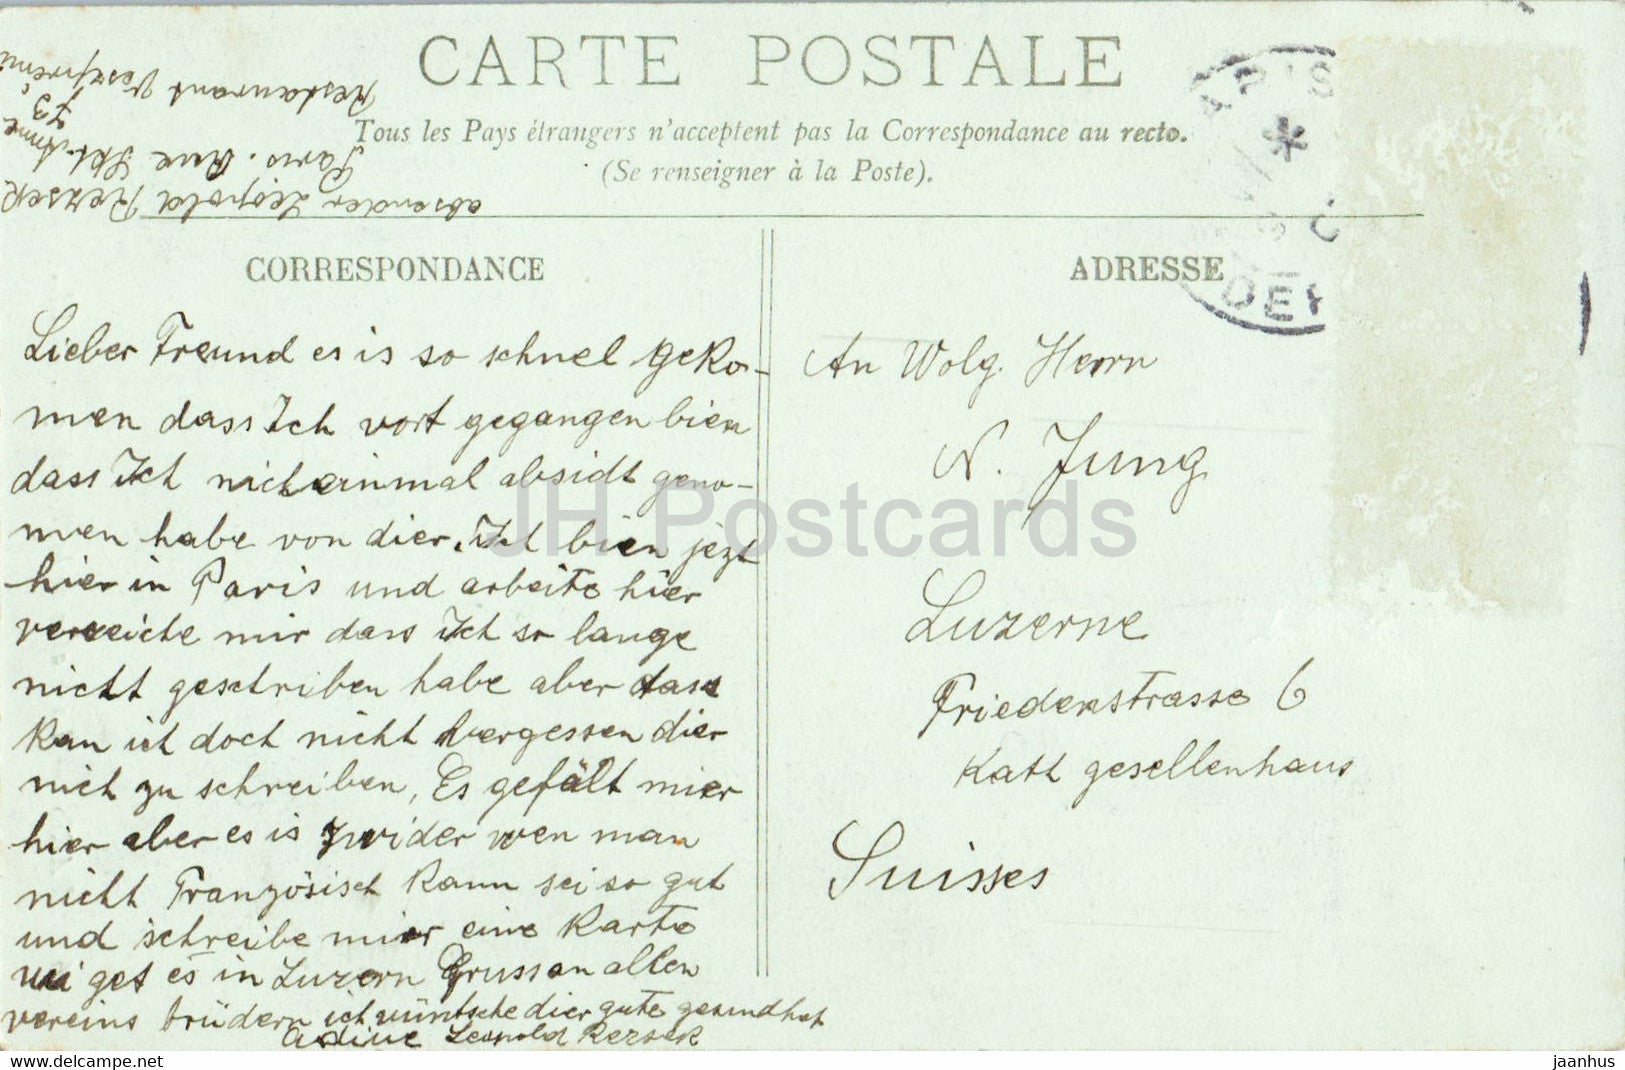 CARTE POSTALE
Tous les Pays étrangers n'acceptent pas la Correspondance au recto.
(Se renseigner à la Poste).
absender Leopold Rezsek
Paris. Rue Skt. Anne
73
Restaurant
CORRESPONDANCE
Lieber Freund es is so schnel geko-
men dass Ich vort gegangen bien
dass Ich nicht einmal absidt geno-
men habe von dier. Ich bien jezt
hier in Paris und arbeite hier
verzeiche mir dass Ich so lange
nicht geschriben habe aber dass
kan ich doch nicht vergessen dier
nich zu schreiben, Es gefält mier
hier aber es is zwider wen man
nicht Französisch kann sei so gut
und schreibe mier eine Karte
wi get es in Luzern Grussan allen
vereins brüdern ich wüntsche dier gute gesundheit
Leopold Rezsek
ADRESSE
An Wolg. Herrn
N. Jung
Luzerne
Friedenstrasse 6
Kath gesellenhaus
Suisses
PARIS
DE
JH Postcards
delcampe.net
jaanhus